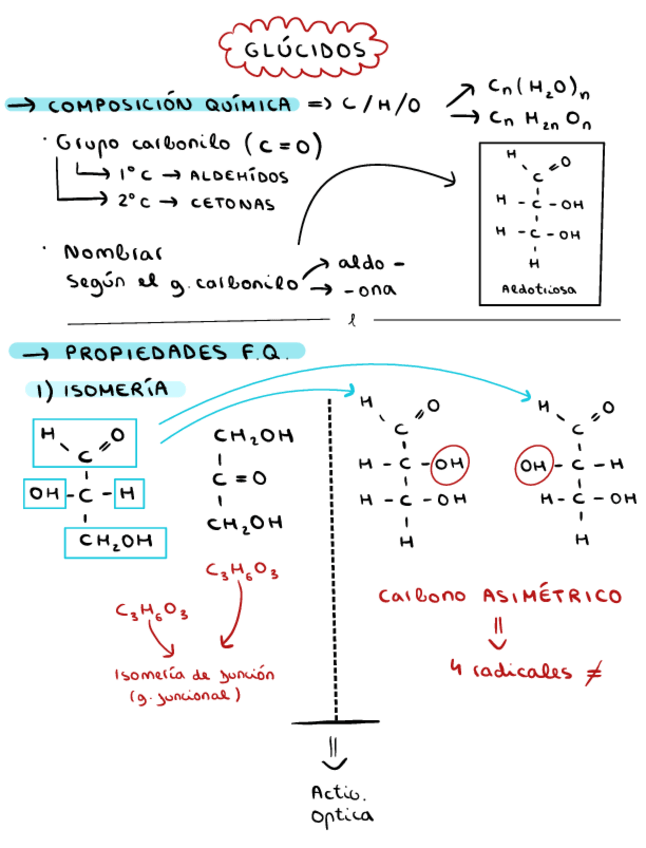 GLÚCIDOS
→ COMPOSICIÓN QUÍMICA => C/H/O
Cn(H₂O)n
→ Cn H₂n On
· Grupo carbonilo (C=O)
→ 1º C → ALDEHÍDOS
→ 2º C → CETONAS
· Nombrar
según el g. carbonilo
→ aldo -
→ -ona
H O
C
H - C - OH
H - C - OH
H
Aldotriosa
→ PROPIEDADES F.Q.
1) ISOMERÍA
H O
C
OH - C - H
CH₂OH
CH₂OH
C = O
CH₂OH
C₃H₆O₃
C₃H₆O₃
Isomería de función
(g. funcional)
H O
C
H - C - OH
H - C - OH
H
H O
C
OH - C - H
H - C - OH
H
Carbono ASIMÉTRICO
4 radicales ≠
Activ.
Optica